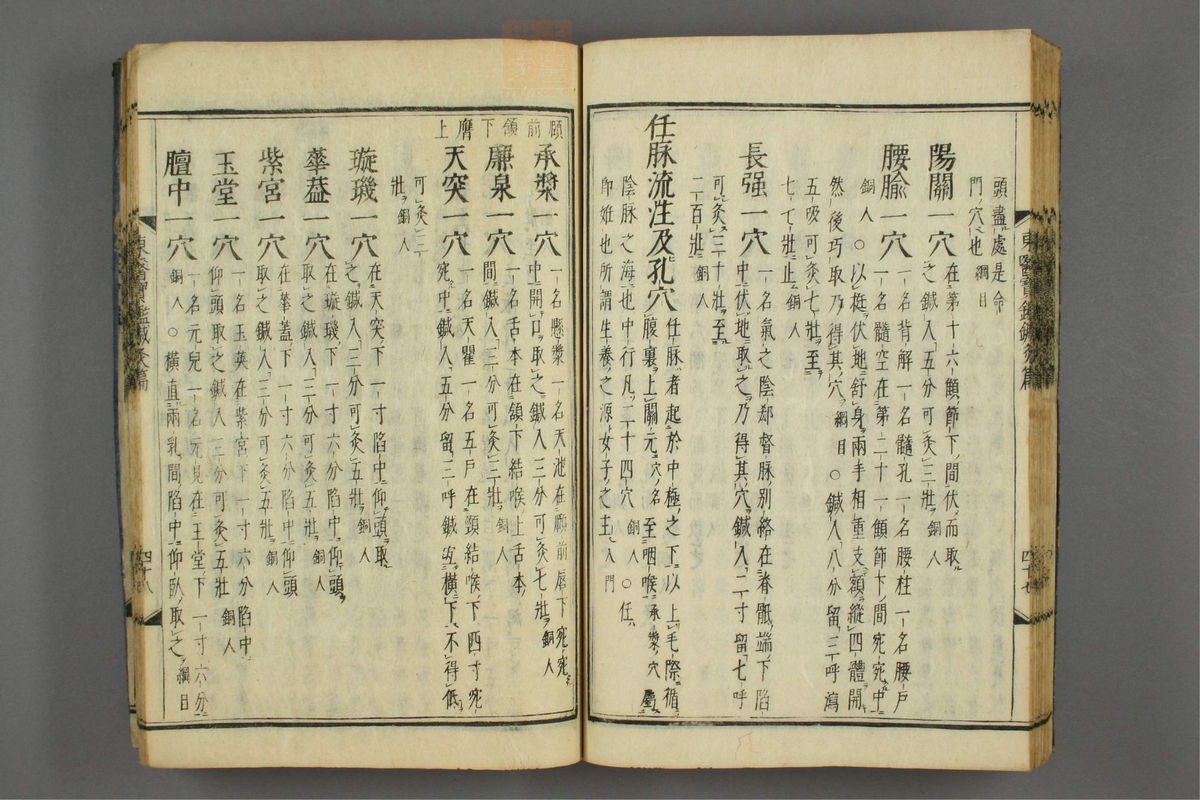 頭盡處是命
門穴也綱目
陽關一穴在第十六顀節下間伏而取
之鍼入五分可灸三壯銅人
腰腧一穴一名背解一名髓孔一名腰柱一名腰戶
一名髓空在第二十一顀節下間宛宛中
銅人○以挺伏地舒身兩手相重支額縱四體開
然後巧取乃得其穴綱目○鍼入八分留三呼瀉
五吸可灸七七壯至
七七壯止銅人
長强一穴一名氣之陰郄督脉別絡在脊骶端下陷
中伏地取之乃得其穴鍼入二寸留七呼
可灸三十壯至
二百壯銅人
任脉流注及孔穴任脉者起於中極之下以上毛際循
腹裏上關元穴名至咽喉承漿穴屬
陰脉之海也中行凡二十四穴銅人○任
卽姙也所謂生養之源女子之主入門
頤前頷下膺上
承漿一穴一名懸漿一名天池在頤前唇下宛宛
中開口取之鍼入三分可灸七壯銅人
廉泉一穴一名舌本在頷下結喉上舌本
間鍼入三分可灸三壯銅人
天突一穴一名天瞿一名五戶在頸結喉下四寸宛
宛中鍼入五分留三呼鍼宜橫下不得低
可灸三
壯銅人
璇璣一穴在天突下一寸陷中仰頭取
之鍼入三分可灸五壯銅人
華蓋一穴在璇璣下一寸六分陷中仰頭
取之鍼入三分可灸五壯銅人
紫宮一穴在華蓋下一寸六分陷中仰頭
取之鍼入三分可灸五壯銅人
玉堂一穴一名玉英在紫宮下一寸六分陷中
仰頭取之鍼入三分可灸五壯銅人
膻中一穴一名元兒一名元見在玉堂下一寸六分
銅人○橫直兩乳間陷中仰臥取之綱目
東醫寶鑑鍼灸篇
四十八
東醫寶鑑鍼灸篇
四十七